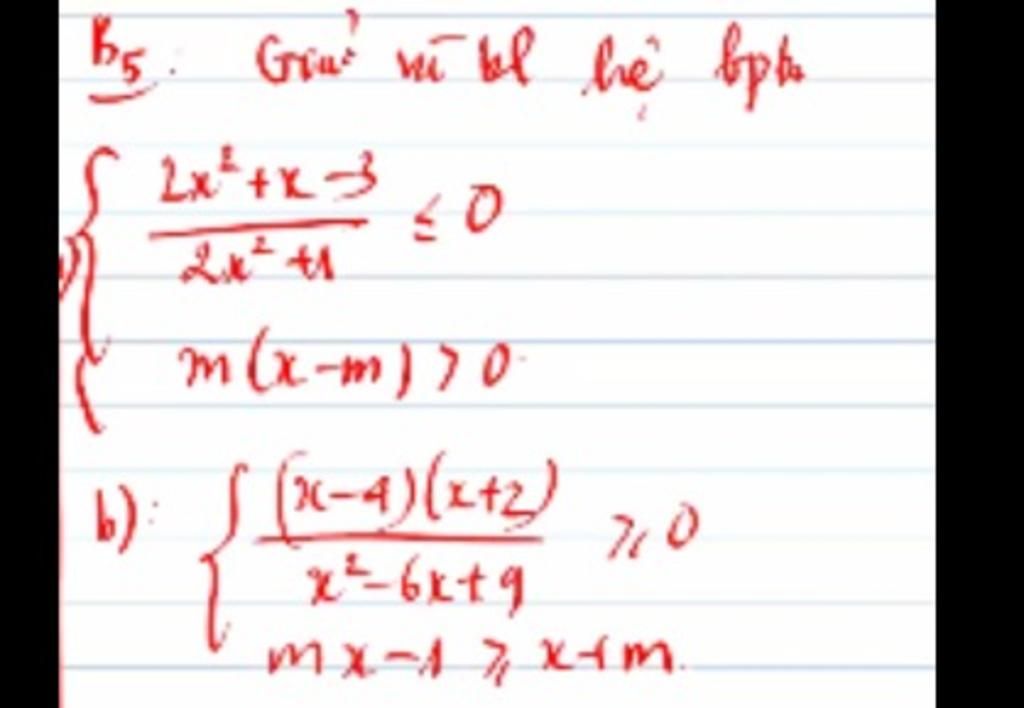 B5: Giải và bl hệ bpt
a) { (2x² + x - 3) / (2x² + 1) ≤ 0
m(x - m) > 0
b): { (x-4)(x+2) / (x² - 6x + 9) ≥ 0
mx - 1 ≥ x + m.